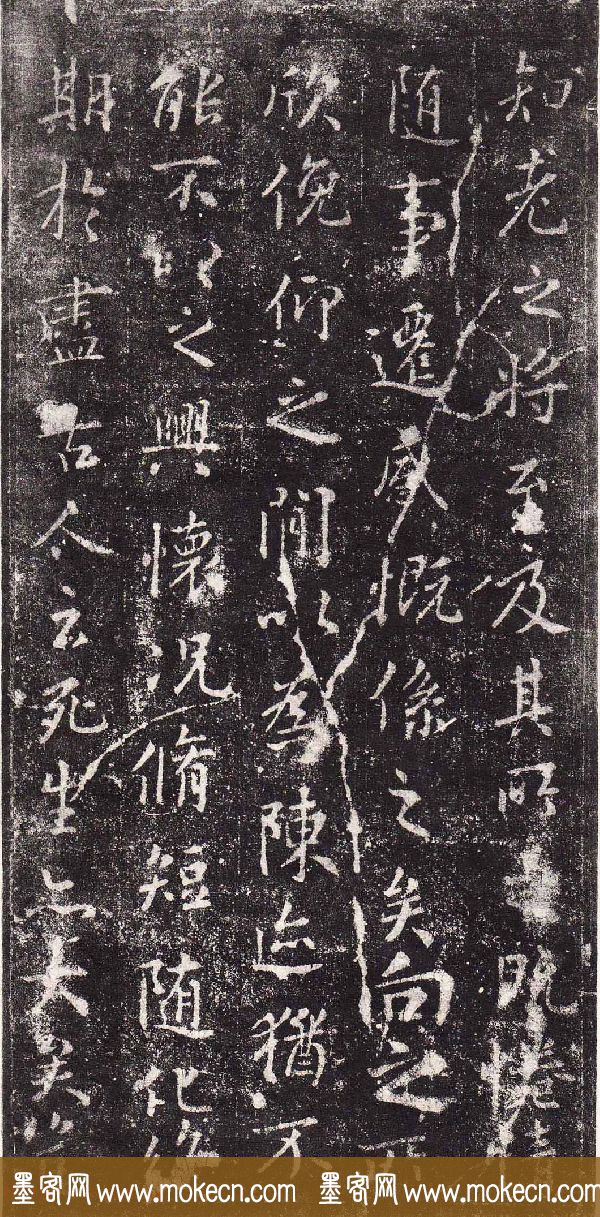 知老之將至及其所之既惓情
随事遷感慨係之矣向之所
欣俛仰之間以為陳迹猶不
能不以之興懷況脩短随化終
期於盡古人云死生亦大矣豈
墨客网 www.mokecn.com 墨客网 www.mokecn.com